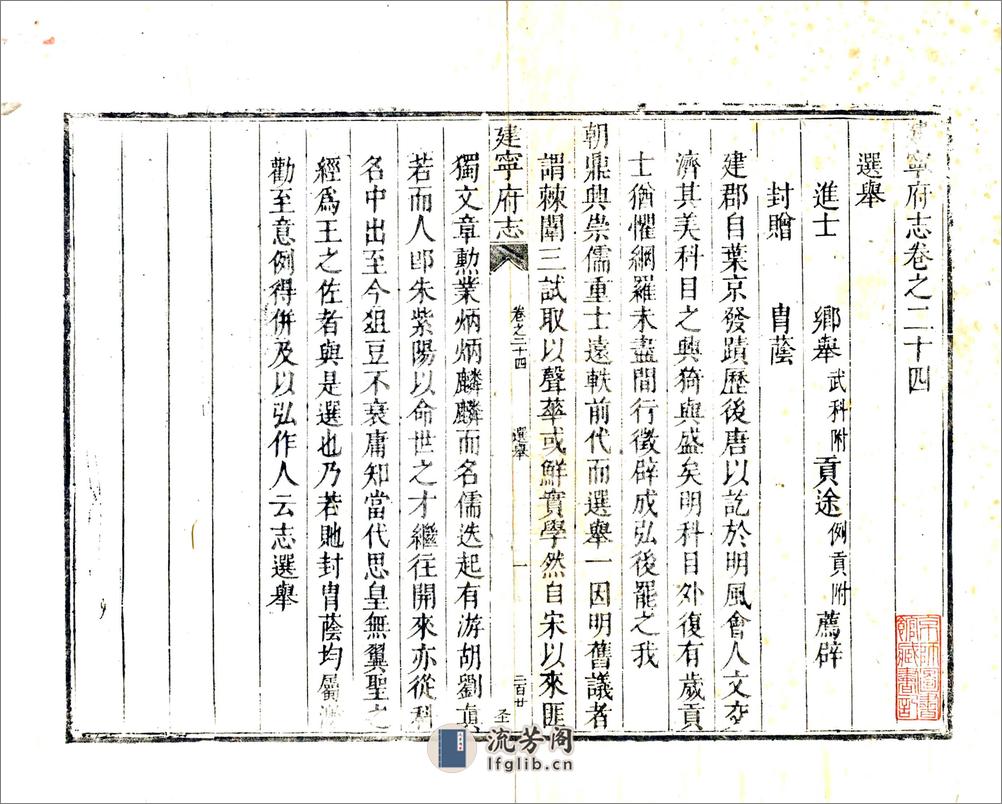 建寧府志卷之二十四
選舉
進士 鄉舉武科附 貢途例貢附 薦辟
封贈 胄蔭
建郡自葉京發蹟歷後唐以訖於明風會人文交
濟其美科目之興猗與盛矣明科目外復有歲貢
士猶懼網羅未盡間行徵辟成弘後罷之我
朝鼎興崇儒重士遠軼前代而選舉一因明舊議者
謂棘闈三試取以聲華或鮮實學然自宋以來匪
建寧府志 卷之二十四 選舉 一 二百廿 圣
獨文章勲業炳炳麟麟而名儒迭起有游胡劉真
若而人卽朱紫陽以命世之才繼往開來亦從科
名中出至今俎豆不衰庸知當代思皇無翼聖之
經爲王之佐者與是選也乃若貤封胄蔭均屬
勸至意例得併及以弘作人云志選舉
京師圖書
館藏書記
流芳阁
lfglib.cn